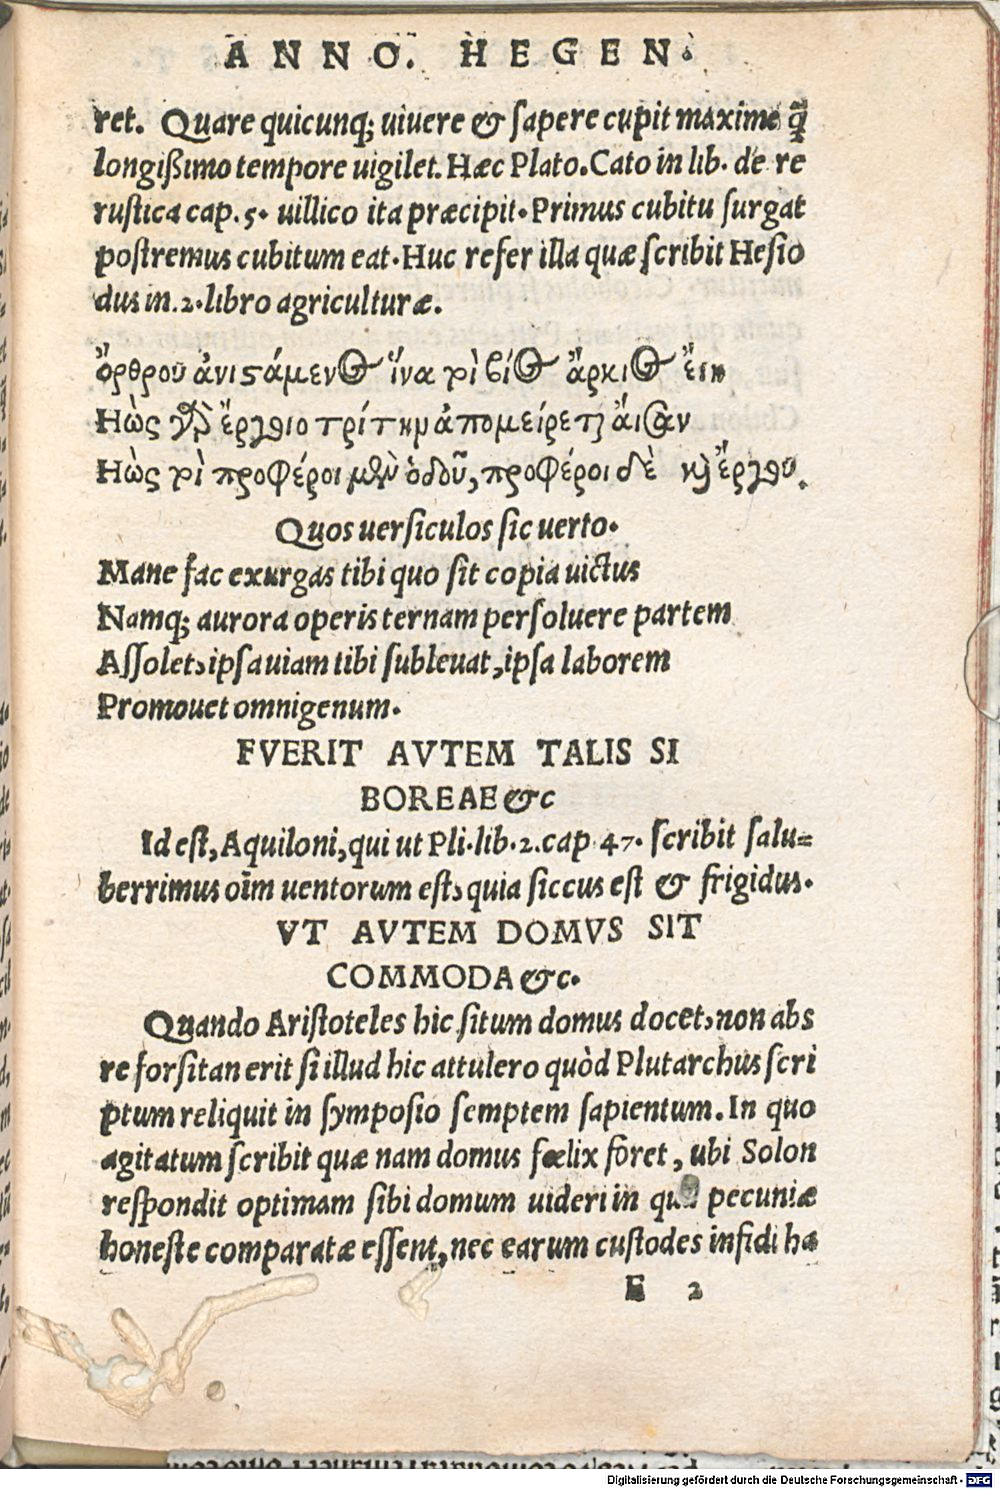 ANNO. HEGEN.
ret. Quare quicunq; uiuere & ſapere cupit maxime q̃
longißimo tempore uigilet. Hæc Plato. Cato in lib. de re
ruſtica cap. 5. uillico ita præcipit. Primus cubitu ſurgat
poſtremus cubitum eat. Huc refer illa quæ ſcribit Heſio
dus in .2. libro agriculturæ.
ὄρθρου ἀνιϛάμενος ἵνα τοι βίος ἄρκιος ἔιη
Ἠὼς γὰρ ἔργοιο τρίτημ ἀπομείρεται ἄισαν
Ἠὼς τοι προφέροι μὲν ὁδοῦ, προφέροι δὲ καὶ ἔργου.
Quos uerſiculos ſic uerto.
Mane fac exurgas tibi quo ſit copia uictus
Namq; aurora operis ternam perſoluere partem
Aſſolet, ipſa uiam tibi ſubleuat, ipſa laborem
Promouet omnigenum.
FVERIT AVTEM TALIS SI
BOREAE &c
Id eſt, Aquiloni, qui ut Pli. lib. 2. cap 47. ſcribit ſalu=
berrimus oīm uentorum eſt, quia ſiccus eſt & frigidus.
VT AVTEM DOMVS SIT
COMMODA &c.
Quando Ariſtoteles hic ſitum domus docet, non abs
re forſitan erit ſi illud hic attulero quòd Plutarchus ſcri
ptum reliquit in ſympoſio ſemptem ſapientum. In quo
agitatum ſcribit quæ nam domus fœlix foret, ubi Solon
reſpondit optimam ſibi domum uideri in qua pecuniæ
honeſte comparatæ eſſent, nec earum cuſtodes infidi ha
E 2
Digitalisierung gefördert durch die Deutsche Forschungsgemeinschaft - DFG